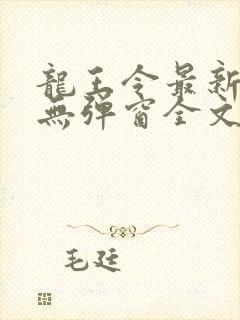 龍王令最新
無彈窗全文
毛廷